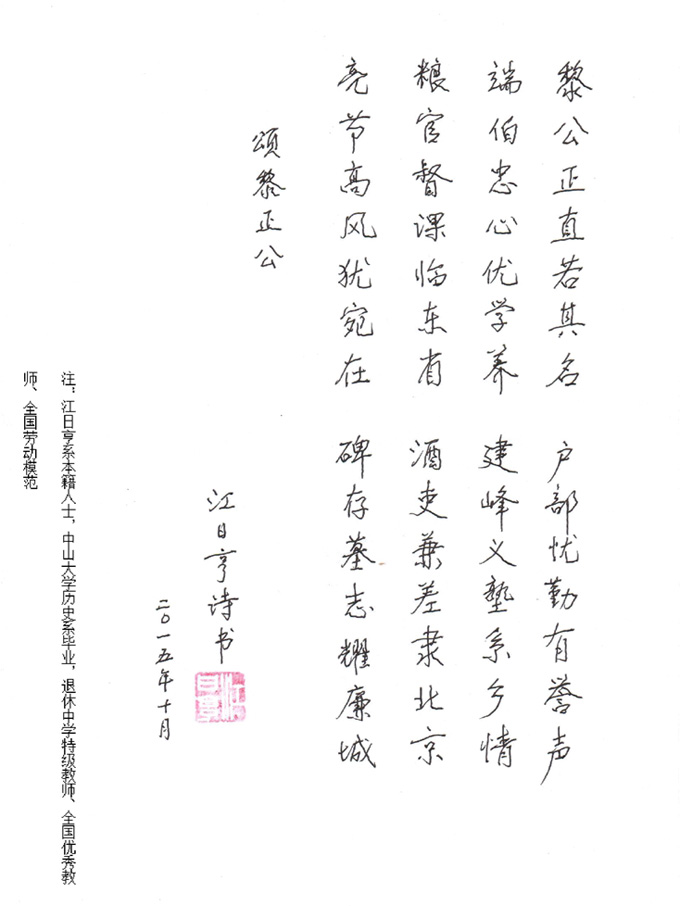 黎公正直若其名 户部忧勤有誉声
端伯忠心优学养 建峰义塾系乡情
粮官督课临东省 酒吏兼差隶北京
亮节高风犹宛在 碑存墓志耀廉城
颂黎正公
江日亨诗书
二〇一五年十月
注：江日亨系本籍人士，中山大学历史系毕业，退休中学特级教师、全国优秀教
师、全国劳动模范